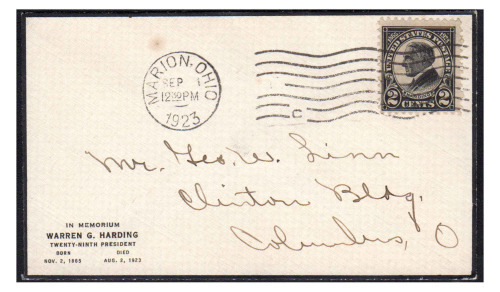 MARION, OHIO
SEP 1
12 30 PM
1923
C
UNITED STATES POSTAGE
2 CENTS 2
Mr. Geo. W. Linn
Clinton Bldg.
Columbus, O
IN MEMORIUM
WARREN G. HARDING
TWENTY-NINTH PRESIDENT
BORN DIED
NOV. 2, 1865 AUG. 2, 1923